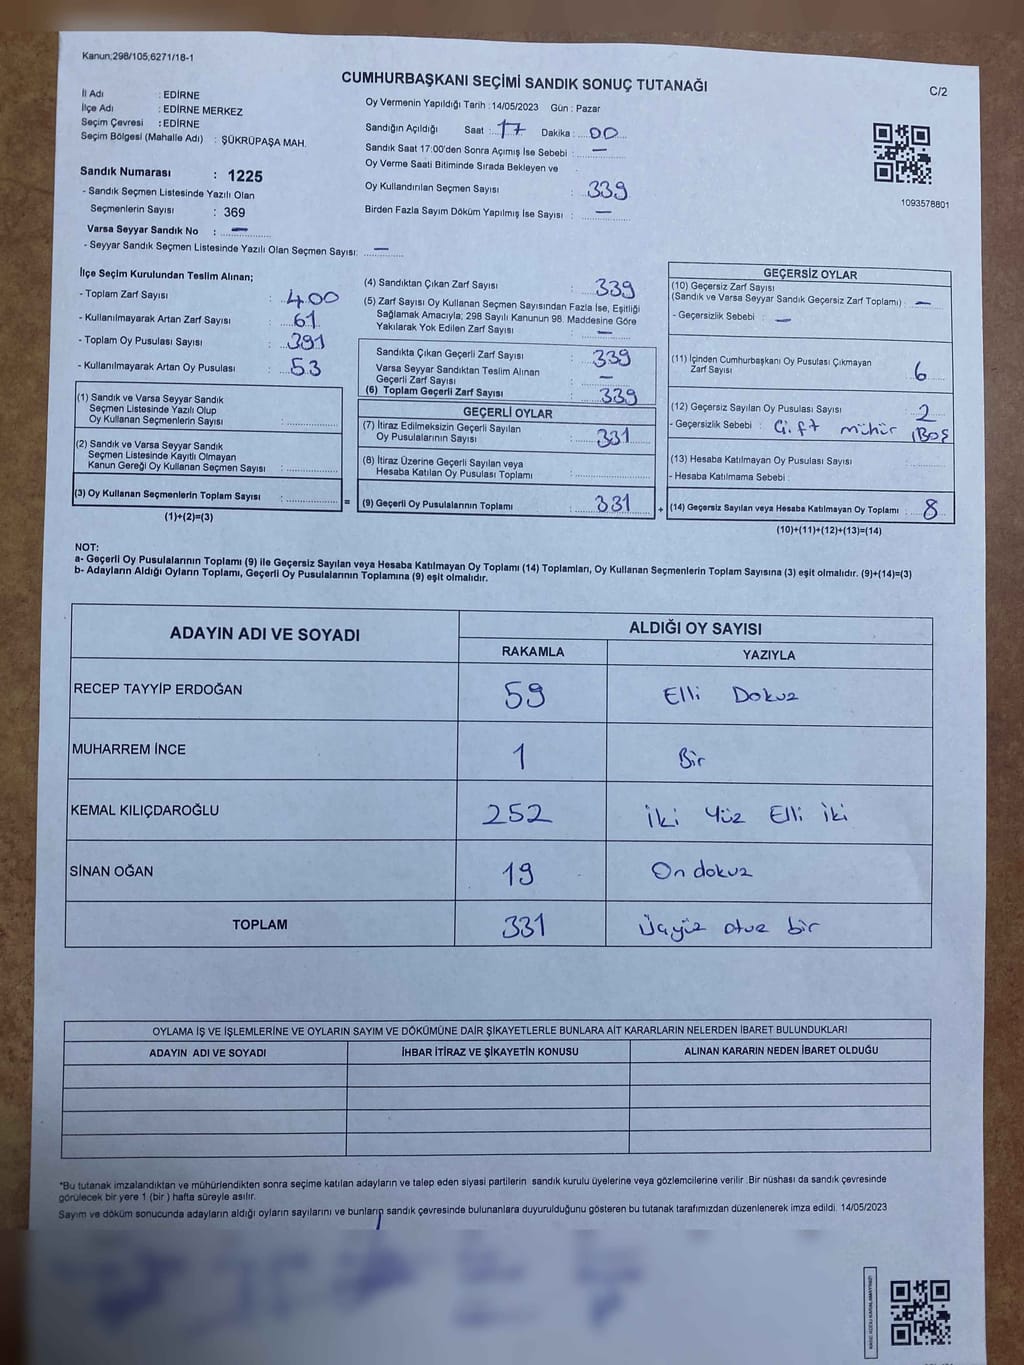 Kanun;298/105,6271/18-1
CUMHURBAŞKANI SEÇİMİ SANDIK SONUÇ TUTANAĞI
C/2
İl Adı : EDİRNE
İlçe Adı : EDİRNE MERKEZ
Seçim Çevresi : EDİRNE
Seçim Bölgesi (Mahalle Adı) : ŞÜKRÜPAŞA MAH.
Oy Vermenin Yapıldığı Tarih :14/05/2023 Gün : Pazar
Sandığın Açıldığı Saat : 17 Dakika : 00
Sandık Saat 17:00'den Sonra Açımış İse Sebebi : —
Oy Verme Saati Bitiminde Sırada Bekleyen ve
Oy Kullandırılan Seçmen Sayısı : 339
Birden Fazla Sayım Döküm Yapılmış İse Sayısı : —
1093578801
Sandık Numarası : 1225
- Sandık Seçmen Listesinde Yazılı Olan
Seçmenlerin Sayısı : 369
Varsa Seyyar Sandık No : —
- Seyyar Sandık Seçmen Listesinde Yazılı Olan Seçmen Sayısı: —
İlçe Seçim Kurulundan Teslim Alınan;
- Toplam Zarf Sayısı : 400
- Kullanılmayarak Artan Zarf Sayısı : 61
- Toplam Oy Pusulası Sayısı : 391
- Kullanılmayarak Artan Oy Pusulası : 53
(1) Sandık ve Varsa Seyyar Sandık
Seçmen Listesinde Yazılı Olup
Oy Kullanan Seçmenlerin Sayısı :
(2) Sandık ve Varsa Seyyar Sandık
Seçmen Listesinde Kayıtlı Olmayan
Kanun Gereği Oy Kullanan Seçmen Sayısı :
(3) Oy Kullanan Seçmenlerin Toplam Sayısı : =
(1)+(2)=(3)
(4) Sandıktan Çıkan Zarf Sayısı : 339
(5) Zarf Sayısı Oy Kullanan Seçmen Sayısından Fazla İse, Eşitliği
Sağlamak Amacıyla; 298 Sayılı Kanunun 98. Maddesine Göre
Yakılarak Yok Edilen Zarf Sayısı : —
Sandıkta Çıkan Geçerli Zarf Sayısı : 339
Varsa Seyyar Sandıktan Teslim Alınan
Geçerli Zarf Sayısı : —
(6) Toplam Geçerli Zarf Sayısı : 339
GEÇERLİ OYLAR
(7) İtiraz Edilmeksizin Geçerli Sayılan
Oy Pusulalarının Sayısı : 331
(8) İtiraz Üzerine Geçerli Sayılan veya
Hesaba Katılan Oy Pusulası Toplamı :
(9) Geçerli Oy Pusulalarının Toplamı : 331 +
GEÇERSİZ OYLAR
(10) Geçersiz Zarf Sayısı
(Sandık ve Varsa Seyyar Sandık Geçersiz Zarf Toplamı) : —
- Geçersizlik Sebebi : —
(11) İçinden Cumhurbaşkanı Oy Pusulası Çıkmayan
Zarf Sayısı : 6
(12) Geçersiz Sayılan Oy Pusulası Sayısı : 2
- Geçersizlik Sebebi : Çift mühür , Boş
(13) Hesaba Katılmayan Oy Pusulası Sayısı :
- Hesaba Katılmama Sebebi :
(14) Geçersiz Sayılan veya Hesaba Katılmayan Oy Toplamı : 8
(10)+(11)+(12)+(13)=(14)
NOT:
a- Geçerli Oy Pusulalarının Toplamı (9) ile Geçersiz Sayılan veya Hesaba Katılmayan Oy Toplamı (14) Toplamları, Oy Kullanan Seçmenlerin Toplam Sayısına (3) eşit olmalıdır. (9)+(14)=(3)
b- Adayların Aldığı Oyların Toplamı, Geçerli Oy Pusulalarının Toplamına (9) eşit olmalıdır.
ADAYIN ADI VE SOYADI
ALDIĞI OY SAYISI
RAKAMLA YAZIYLA
RECEP TAYYİP ERDOĞAN 59 Elli Dokuz
MUHARREM İNCE 1 Bir
KEMAL KILIÇDAROĞLU 252 İki Yüz Elli iki
SİNAN OĞAN 19 On dokuz
TOPLAM 331 Üçyüz otuz bir
OYLAMA İŞ VE İŞLEMLERİNE VE OYLARIN SAYIM VE DÖKÜMÜNE DAİR ŞİKAYETLERLE BUNLARA AİT KARARLARIN NELERDEN İBARET BULUNDUKLARI
ADAYIN ADI VE SOYADI İHBAR İTİRAZ VE ŞİKAYETİN KONUSU ALINAN KARARIN NEDEN İBARET OLDUĞU
*Bu tutanak imzalandıktan ve mühürlendikten sonra seçime katılan adayların ve talep eden siyasi partilerin sandık kurulu üyelerine veya gözlemcilerine verilir .Bir nüshası da sandık çevresinde
görülecek bir yere 1 (bir ) hafta süreyle asılır.
Sayım ve döküm sonucunda adayların aldığı oyların sayılarını ve bunların sandık çevresinde bulunanlara duyurulduğunu gösteren bu tutanak tarafımızdan düzenlenerek imza edildi. 14/05/2023